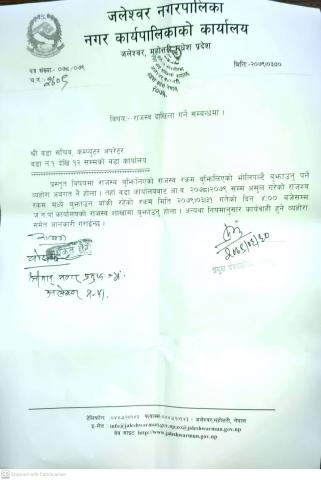 जलेश्वर नगरपालिका
नगर कार्यपालिकाको कार्यालय
जलेश्वर, महोत्तरी, मधेश प्रदेश
पत्र संख्या:- ०७८/०७९
मिति:- २०७९/०३/३०
च.नं.: २६०९
विषय:- राजस्व दाखिला गर्ने सम्बन्धमा ।
श्री वडा सचिव, कम्प्युटर अपरेटर
वडा नं.१ देखि १२ सम्मको वडा कार्यालय
प्रस्तुत विषयमा राजस्व बुझिलिएको राजस्व रकम बुझिलिएको भोलिपल्टै बुझाउनु पर्ने
व्यहोरा अवगत नै होला । तहाँ वडा कार्यालयबाट आ.व. २०७८/२०७९ सम्म असुल गरेको राजस्व
रकम मध्ये बुझाउन बाँकी रहेको रकम मिति २०७९/०३/३१ गतेको दिन ४:०० बजेसम्म
ज.न.पा कार्यालयको राजस्व शाखामा बुझाउनु होला । अन्यथा नियमानुसार कार्यवाही हुने व्यहोरा
समेत जानकारी गराईन्छ ।
बोधार्थ
२०७९/०३/३०
टेलिफोन:
फ्याक्स: जलेश्वर, महोत्तरी, नेपाल
इ-मेल : info@jaleshwarmun.gov.np
वेब साइट http://www.jaleshwarmun.gov.np
Scanned with CamScanner